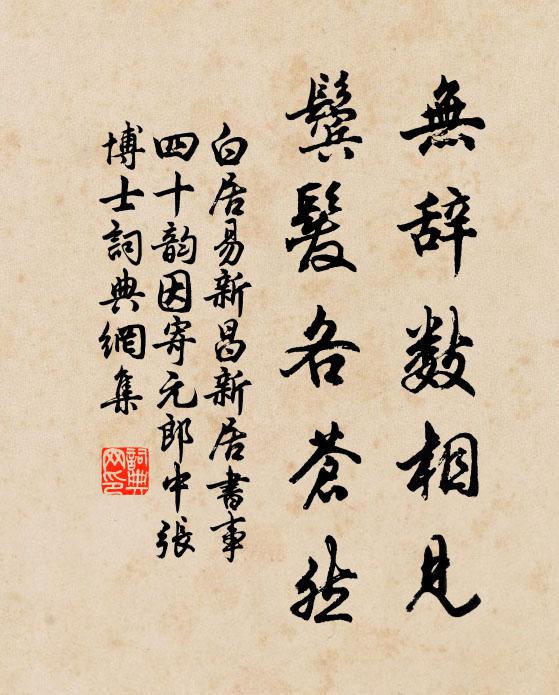 無辞數相見
鬢髮各蒼然
白居易新昌新居書事
四十韵因寄元郎中張
博士詞典網集
詞典网印